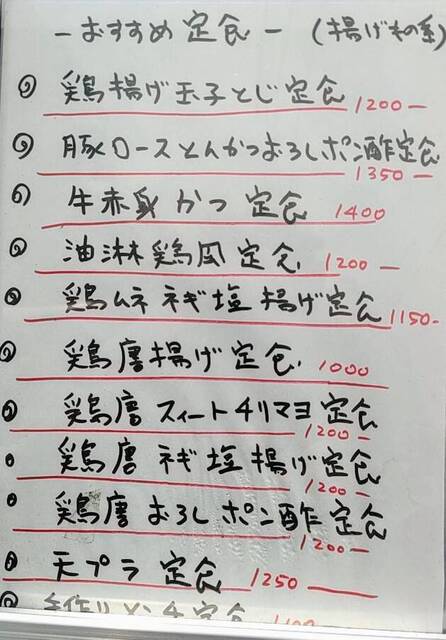 －おすすめ 定食－ (揚げもの系)
鶏揚げ玉子とじ定食 1200－
豚ロースとんかつおろしポン酢定食 1350－
牛赤身かつ定食 1400
油淋鶏風定食 1200－
鶏ムネネギ塩揚げ定食 1150－
鶏唐揚げ定食 1000
鶏唐スィートチリマヨ定食 1200－
鶏唐ネギ塩揚げ定食 1200－
鶏唐おろしポン酢定食 1200－
天プラ定食 1250－
手作りメンチ定食